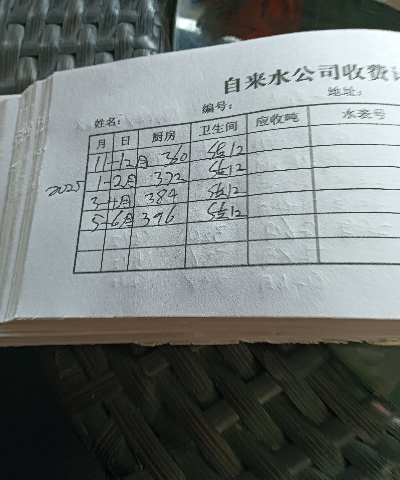 自来水公司收费
姓名: 编号: 地址:
月 日 厨房 卫生间 应收吨 水表号
11-12月 360 5612
2025 1-2月 372 5612
3-4月 384 5612
5-6月 396 5612